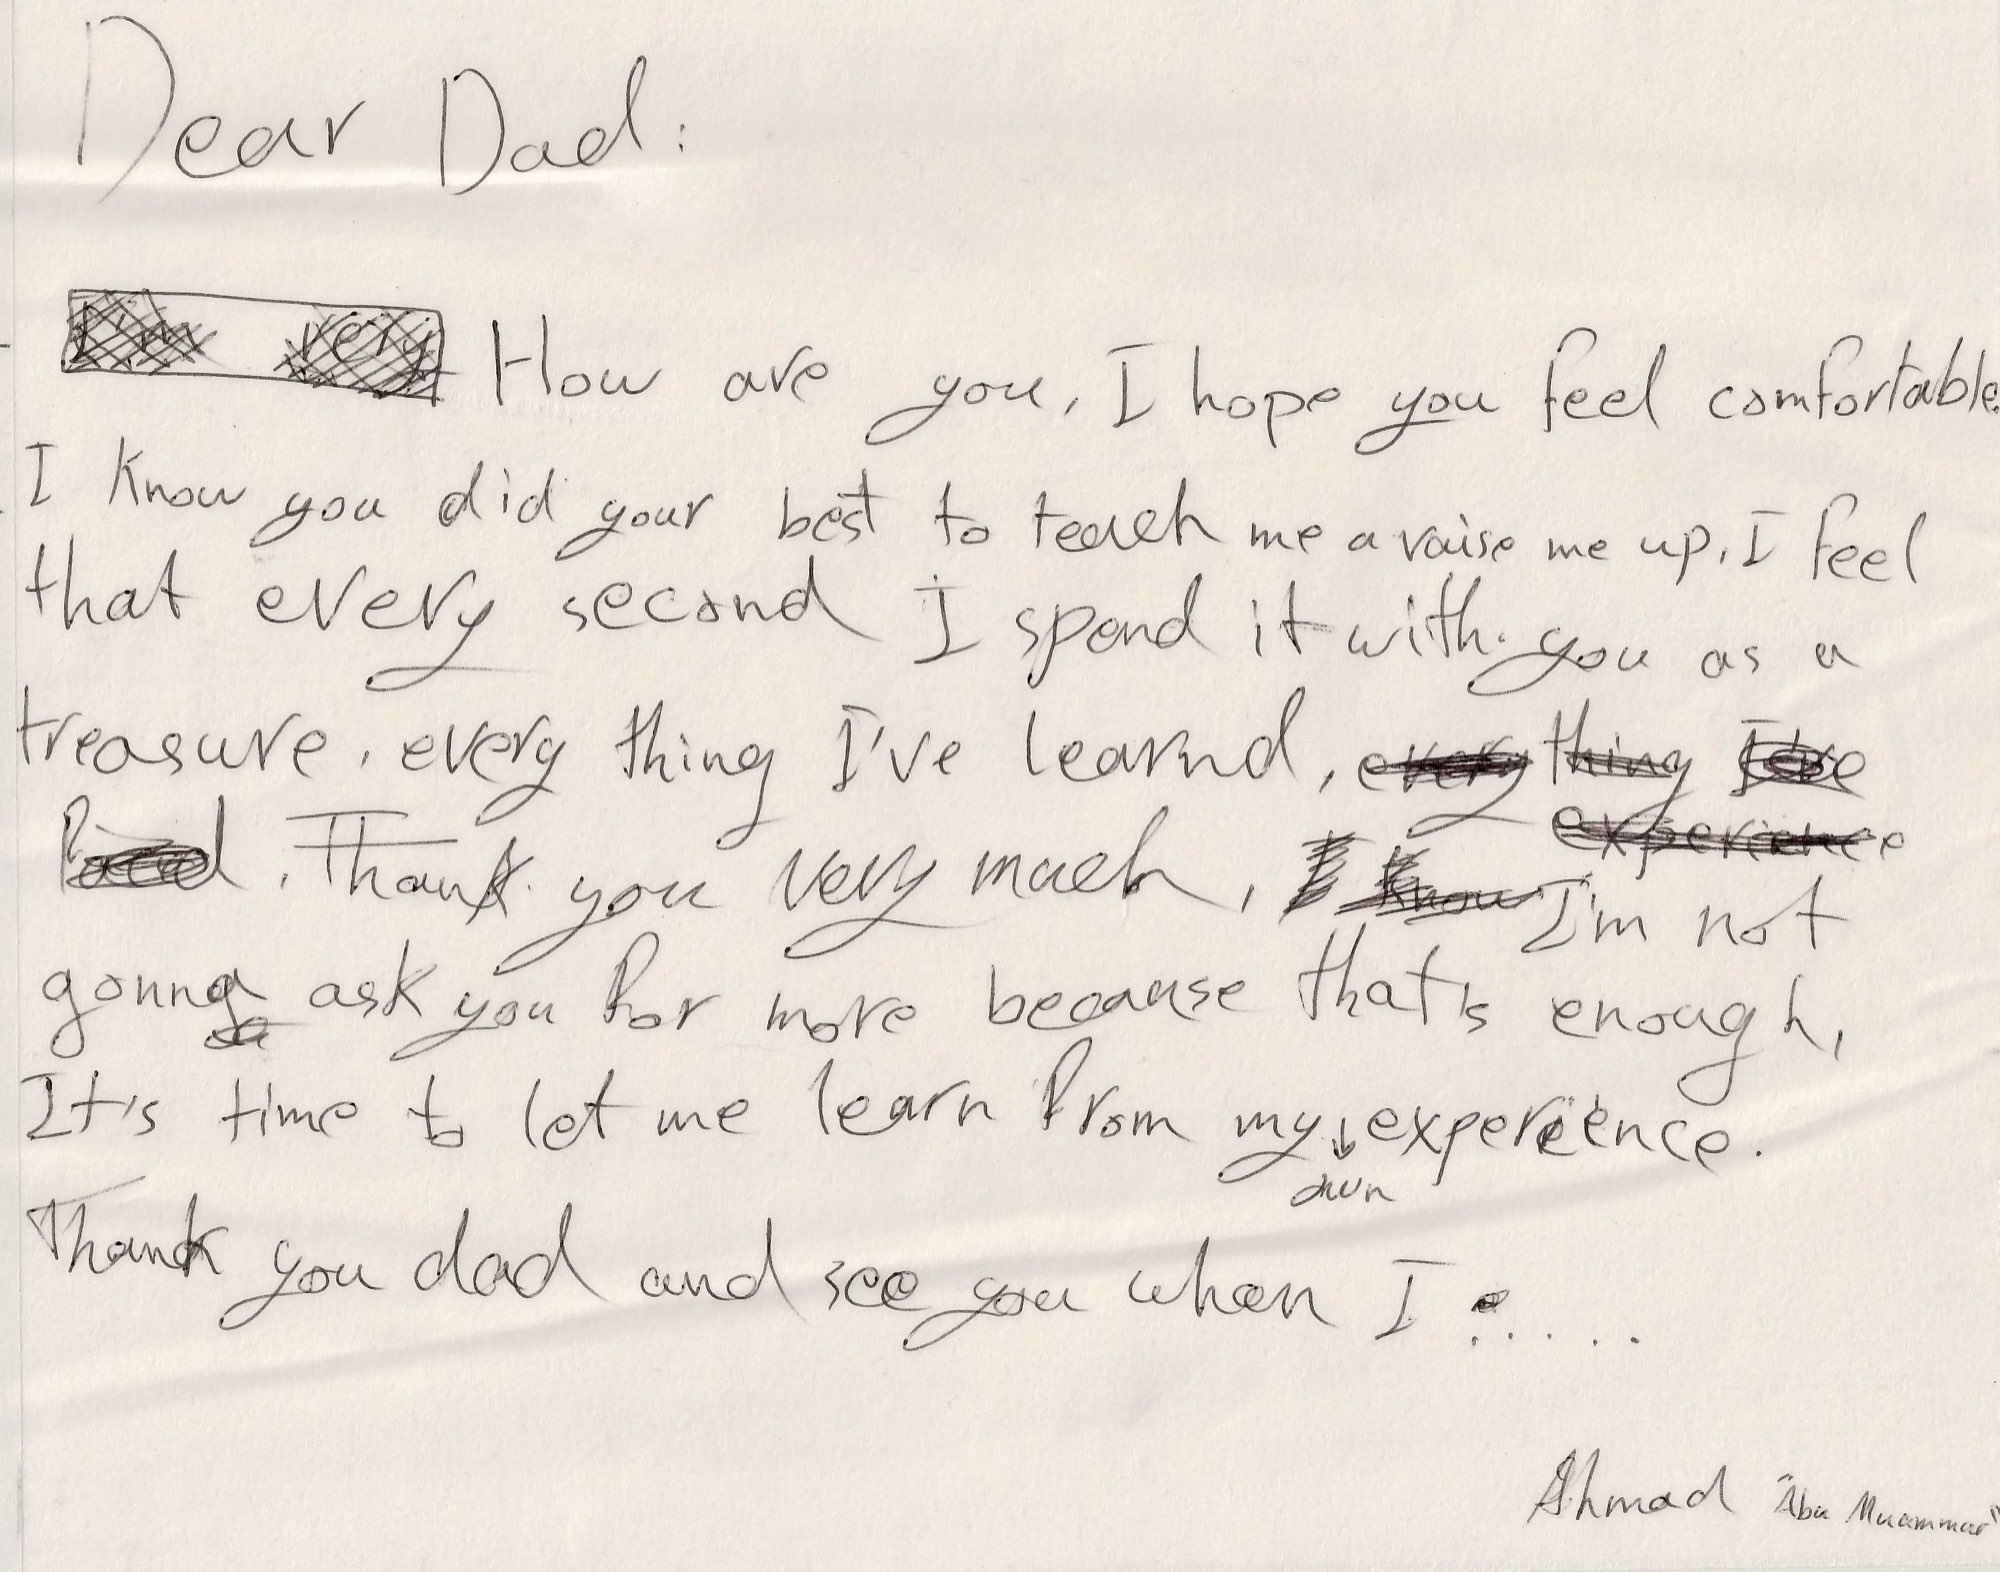 Dear Dad:
I'm very How are you, I hope you feel comfortable.
I know you did your best to teach me a raise me up, I feel
that every second I spend it with you as a
treasure, every thing I've learnd, every thing I've
experience
. Thank you very much, I know I'm not
gonna ask you for more because that's enough,
It's time to let me learn from my experience.
own
Thank you dad and see you when I .....
Ahmad "Abu Muammar"